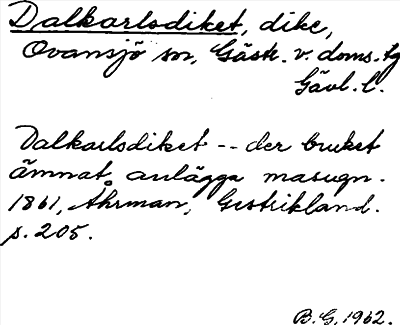 Dalkarlsdiket, dike,
Ovansjö sn, Gästr. v. doms. tg
Gävl. l.
Dalkarlsdiket -- der bruket
ämnat anlägga masugn.
1861, Åhrman, Gestrikland.
s. 205.
B.G. 1962.